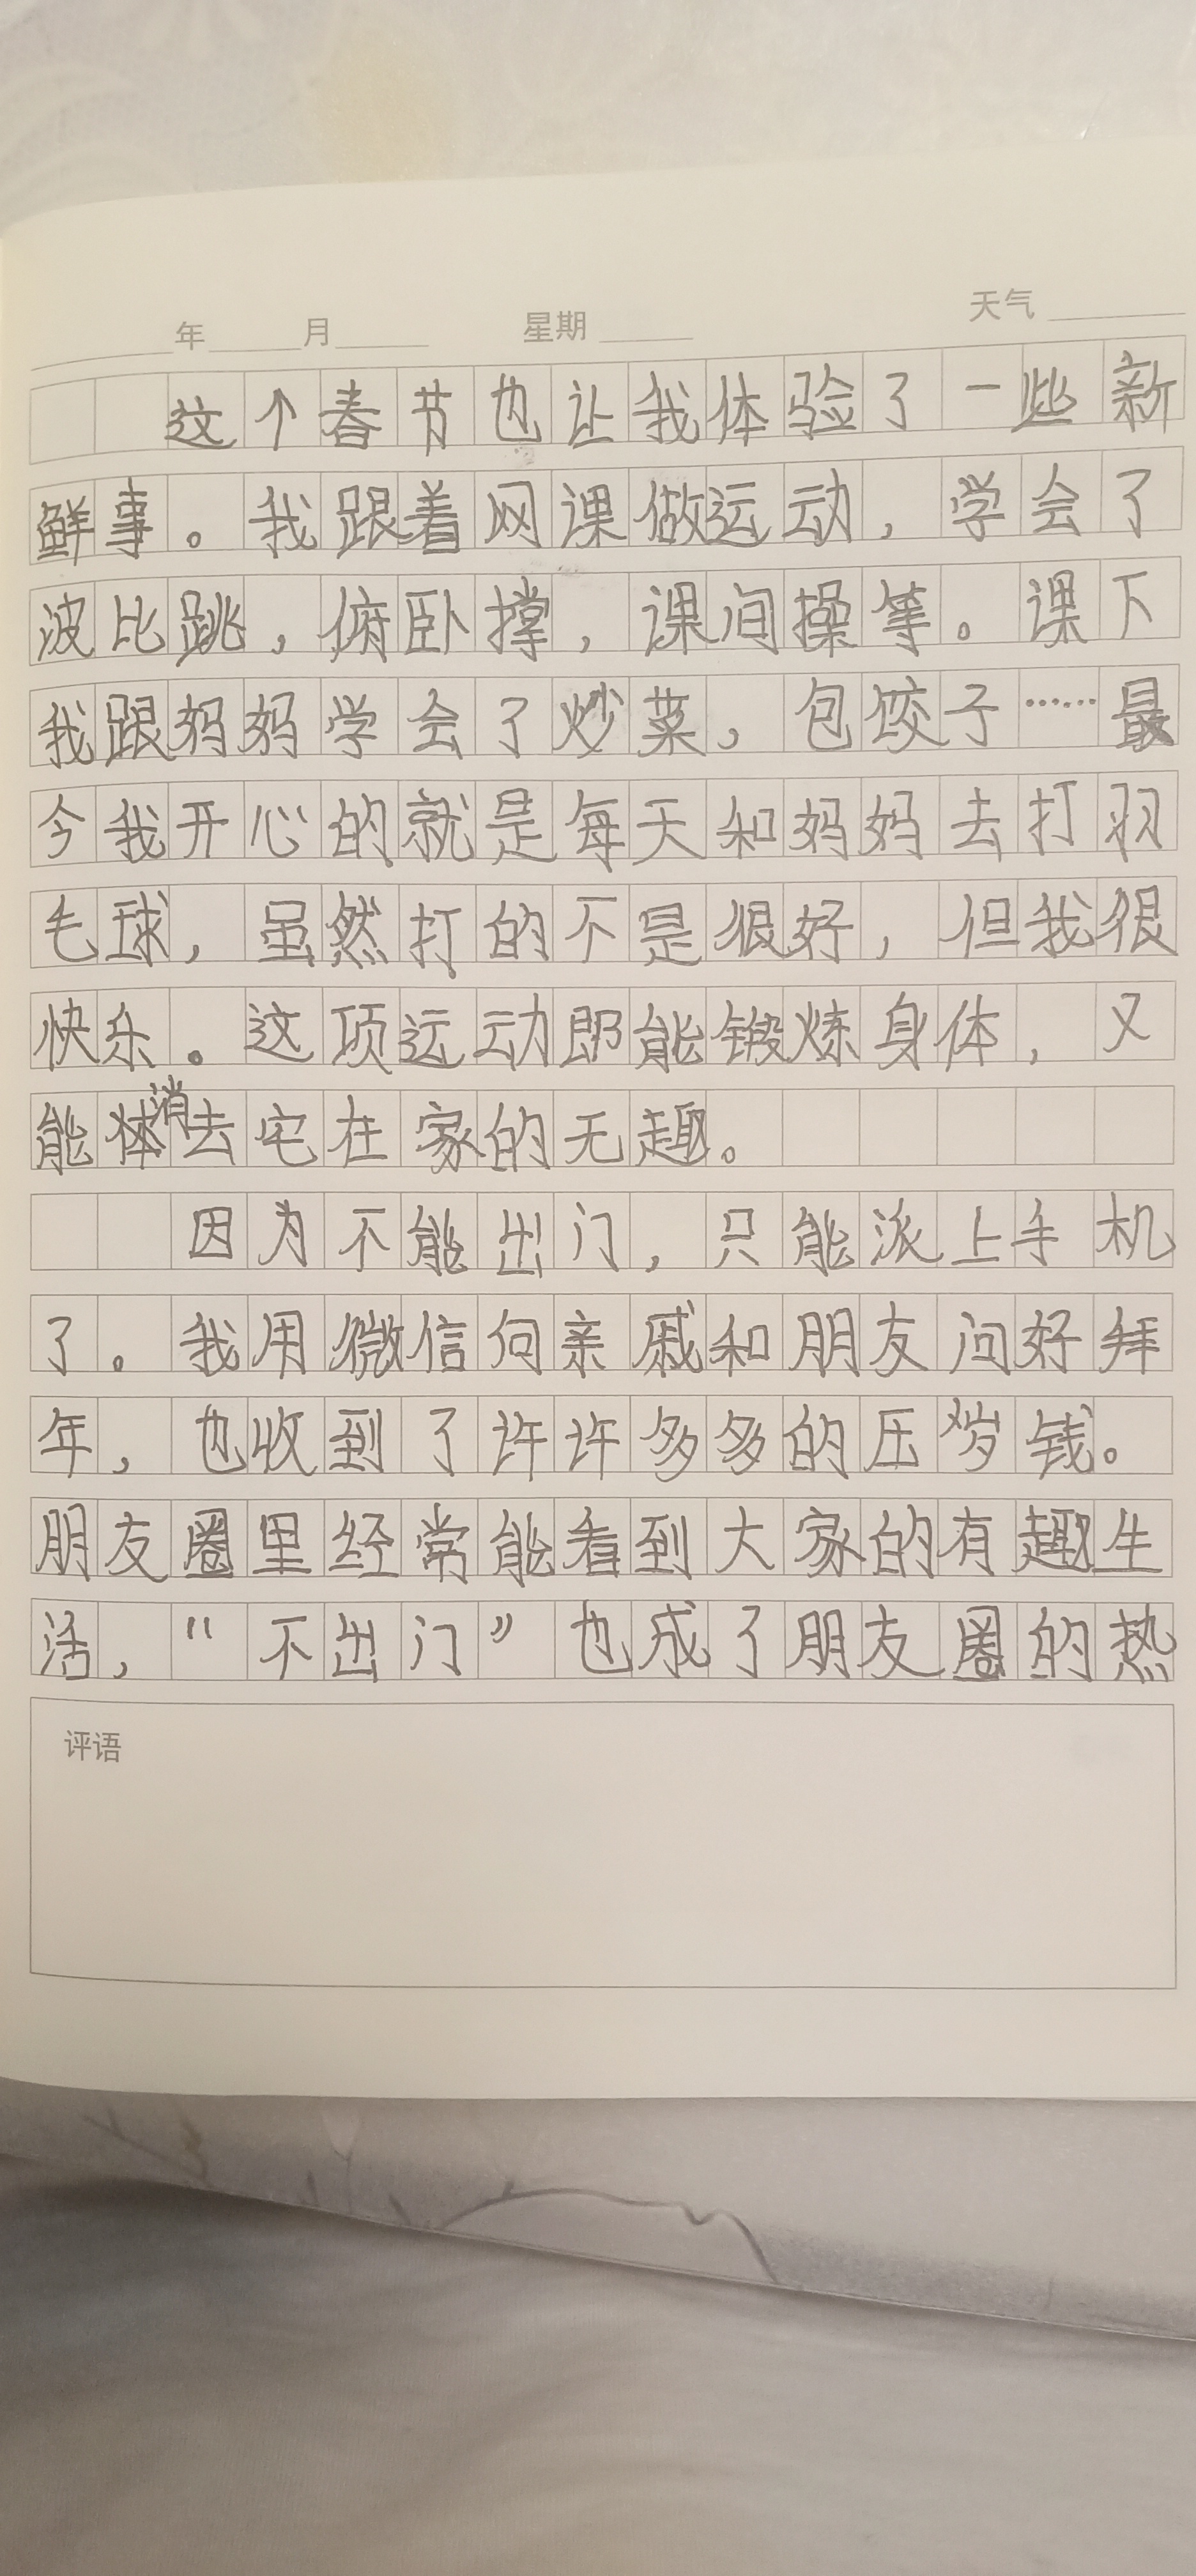 年 月 星期 天气
这个春节也让我体验了一些新
鲜事。我跟着网课做运动，学会了
波比跳，俯卧撑，课间操等。课下
我跟妈妈学会了炒菜，包饺子……最
今我开心的就是每天和妈妈去打羽
毛球，虽然打的不是很好，但我很
快乐。这项运动即能锻炼身体，又
能消去宅在家的无趣。
因为不能出门，只能派上手机
了。我用微信向亲戚和朋友问好拜
年，也收到了许许多多的压岁钱。
朋友圈里经常能看到大家的有趣生
活，“不出门”也成了朋友圈的热
评语